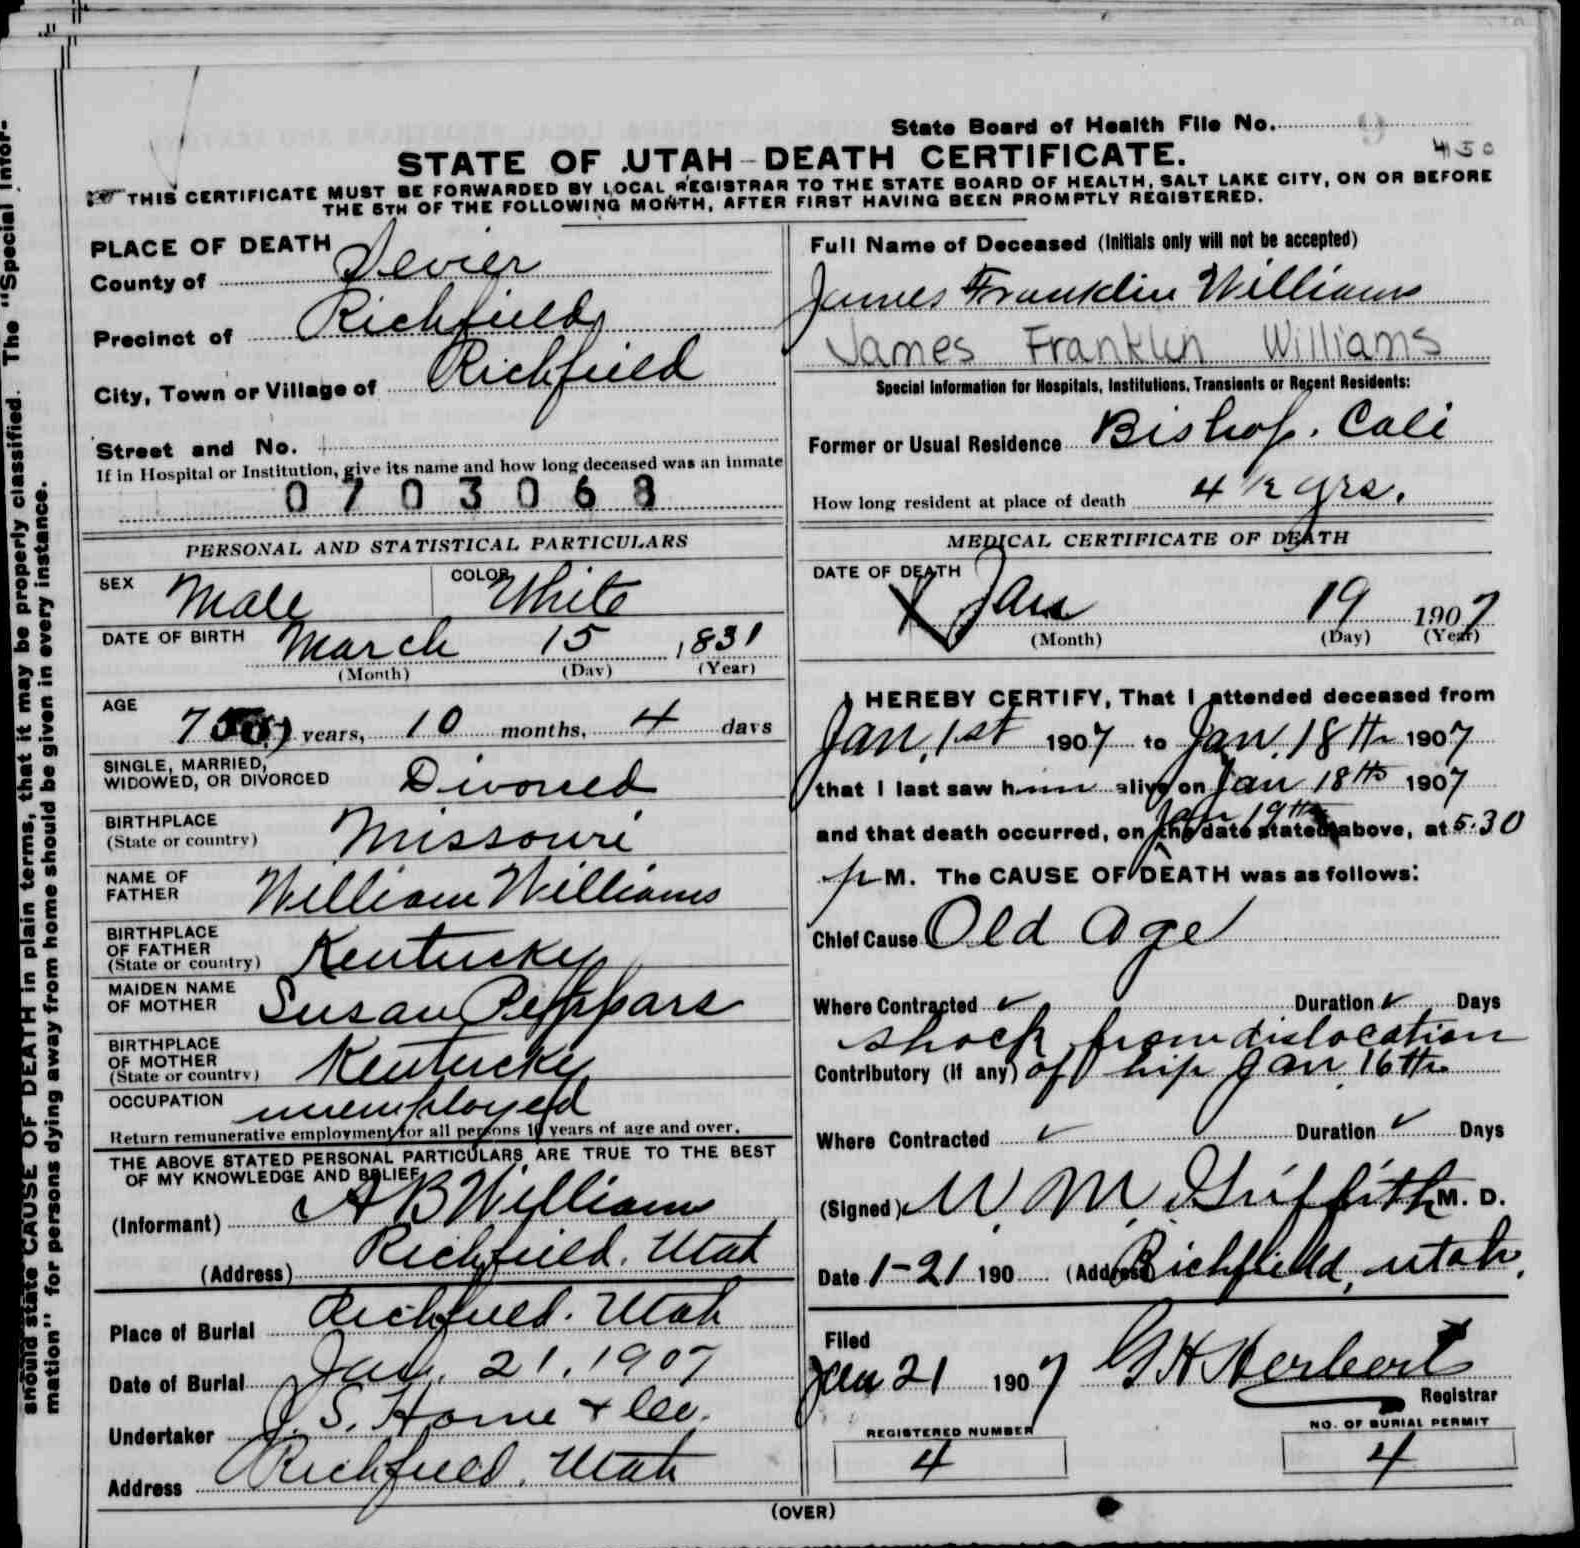 State Board of Health File No. 9
450
STATE OF UTAH-DEATH CERTIFICATE.
THIS CERTIFICATE MUST BE FORWARDED BY LOCAL REGISTRAR TO THE STATE BOARD OF HEALTH, SALT LAKE CITY, ON OR BEFORE
THE 5TH OF THE FOLLOWING MONTH, AFTER FIRST HAVING BEEN PROMPTLY REGISTERED.
PLACE OF DEATH
County of Sevier
Precinct of Richfield
City, Town or Village of Richfield
Street and No.
If in Hospital or Institution, give its name and how long deceased was an inmate
0703068
PERSONAL AND STATISTICAL PARTICULARS
SEX Male COLOR White
DATE OF BIRTH March 15 1831
(Month) (Day) (Year)
AGE
75 years, 10 months, 4 days
SINGLE, MARRIED,
WIDOWED, OR DIVORCED Divorced
BIRTHPLACE
(State or country) Missouri
NAME OF
FATHER William Williams
BIRTHPLACE
OF FATHER
(State or country) Kentucky
MAIDEN NAME
OF MOTHER Susan Peppars
BIRTHPLACE
OF MOTHER
(State or country) Kentucky
OCCUPATION unemployed
Return remunerative employment for all persons 10 years of age and over.
THE ABOVE STATED PERSONAL PARTICULARS ARE TRUE TO THE BEST
OF MY KNOWLEDGE AND BELIEF
(Informant) A B Williams
(Address) Richfield, Utah
Place of Burial Richfield. Utah
Date of Burial Jan. 21, 1907
Undertaker J. S. Horne & Co.
Address Richfield, Utah
Full Name of Deceased (Initials only will not be accepted)
James Franklin Williams
James Franklin Williams
Special Information for Hospitals, Institutions, Transients or Recent Residents:
Former or Usual Residence Bishop. Cali
How long resident at place of death 4 ½ yrs.
MEDICAL CERTIFICATE OF DEATH
DATE OF DEATH
Jan 19 1907
(Month) (Day) (Year)
I HEREBY CERTIFY, That I attended deceased from
Jan, 1st 1907 to Jan. 18th 1907
that I last saw him alive on Jan 18th 1907
Jan 19th
and that death occurred, on the date stated above, at 5.30
p M. The CAUSE OF DEATH was as follows:
Chief Cause Old Age
Where Contracted ✓ Duration ✓ Days
shock from dislocation
Contributory (if any) of hip Jan 16th
Where Contracted ✓ Duration ✓ Days
(Signed) W. M. Griffith M. D.
Date 1-21 190 (Address) Richfield, Utah.
Filed
Jan 21 1907 G H Herbert
Registrar
REGISTERED NUMBER
4
NO. OF BURIAL PERMIT
4
(OVER)
should state CAUSE OF DEATH in plain terms, that it may be properly classified. The "Special Infor-
mation" for persons dying away from home should be given in every instance.